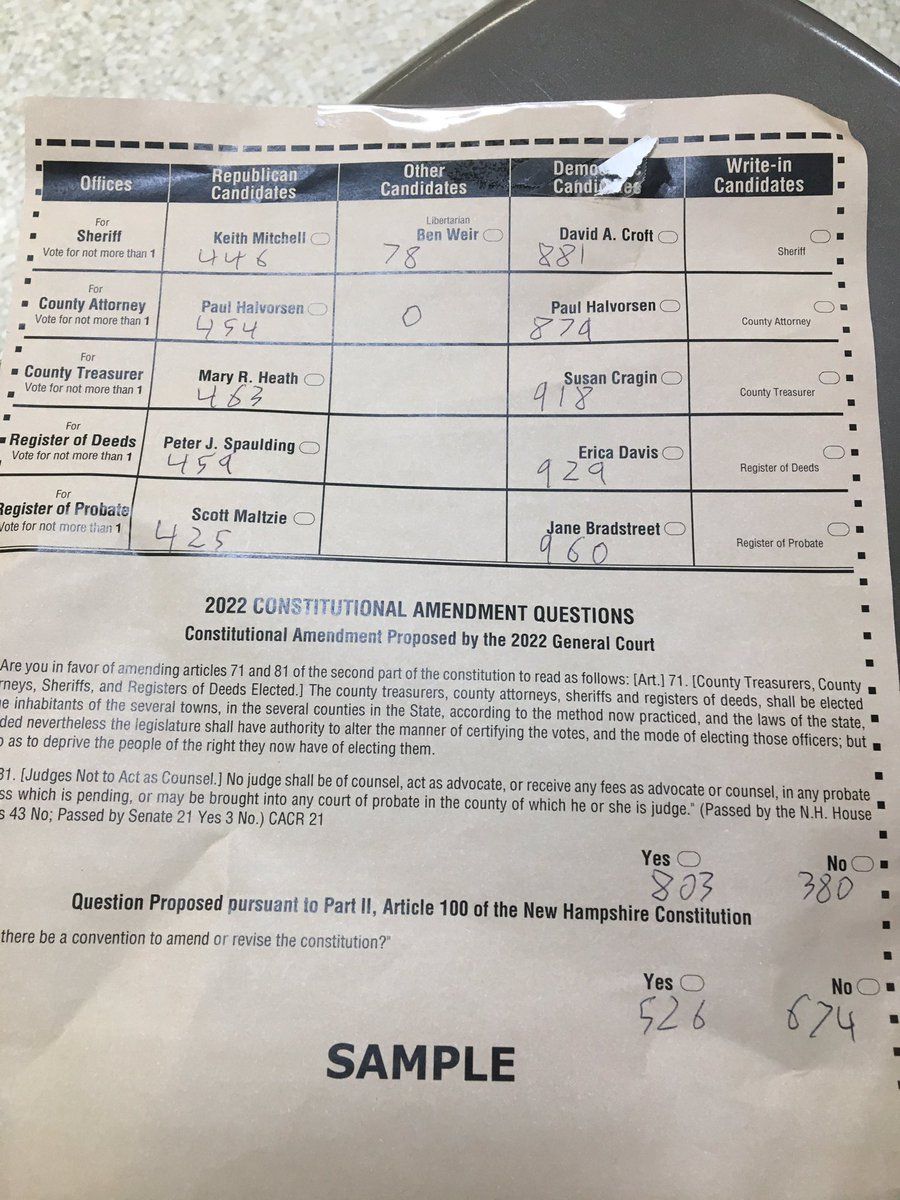 Offices Republican Candidates Other Candidates Write-in Candidates
For
Sheriff
Vote for not more than 1
Keith Mitchell
446
Libertarian
Ben Weir
78
David A. Croft
881
Sheriff
For
County Attorney
Vote for not more than 1
Paul Halvorsen
454
0
Paul Halvorsen
879
County Attorney
For
County Treasurer
Vote for not more than 1
Mary R. Heath
463
Susan Cragin
918
County Treasurer
For
Register of Deeds
Vote for not more than 1
Peter J. Spaulding
459
Erica Davis
929
Register of Deeds
For
Register of Probate
Vote for not more than 1
Scott Maltzie
425
Jane Bradstreet
960
Register of Probate
2022 CONSTITUTIONAL AMENDMENT QUESTIONS
Constitutional Amendment Proposed by the 2022 General Court
Are you in favor of amending articles 71 and 81 of the second part of the constitution to read as follows: [Art.] 71. [County Treasurers, County
rneys, Sheriffs, and Registers of Deeds Elected.] The county treasurers, county attorneys, sheriffs and registers of deeds, shall be elected
e inhabitants of the several towns, in the several counties in the State, according to the method now practiced, and the laws of the state,
ded nevertheless the legislature shall have authority to alter the manner of certifying the votes, and the mode of electing those officers; but
o as to deprive the people of the right they now have of electing them.
31. [Judges Not to Act as Counsel.] No judge shall be of counsel, act as advocate, or receive any fees as advocate or counsel, in any probate
ss which is pending, or may be brought into any court of probate in the county of which he or she is judge." (Passed by the N.H. House
s 43 No; Passed by Senate 21 Yes 3 No.) CACR 21
Yes No
803 380
Question Proposed pursuant to Part II, Article 100 of the New Hampshire Constitution
there be a convention to amend or revise the constitution?"
Yes No
526 674
SAMPLE